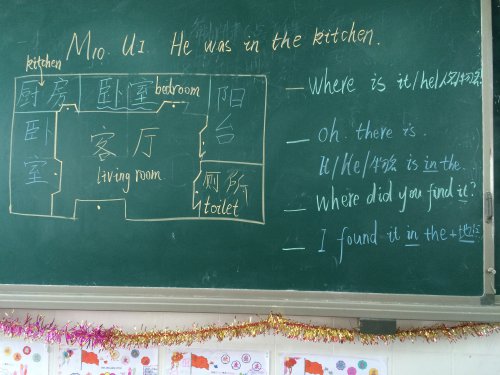 M10. U1. He was in the kitchen.
kitchen
厨房
卧室
bedroom
阳台
卧室
客厅
living room
厕所
toilet
— Where is it/he/人名/物品?
— Oh. there is.
It/He/物品 is in the...
— Where did you find it?
— I found it in the + 地点